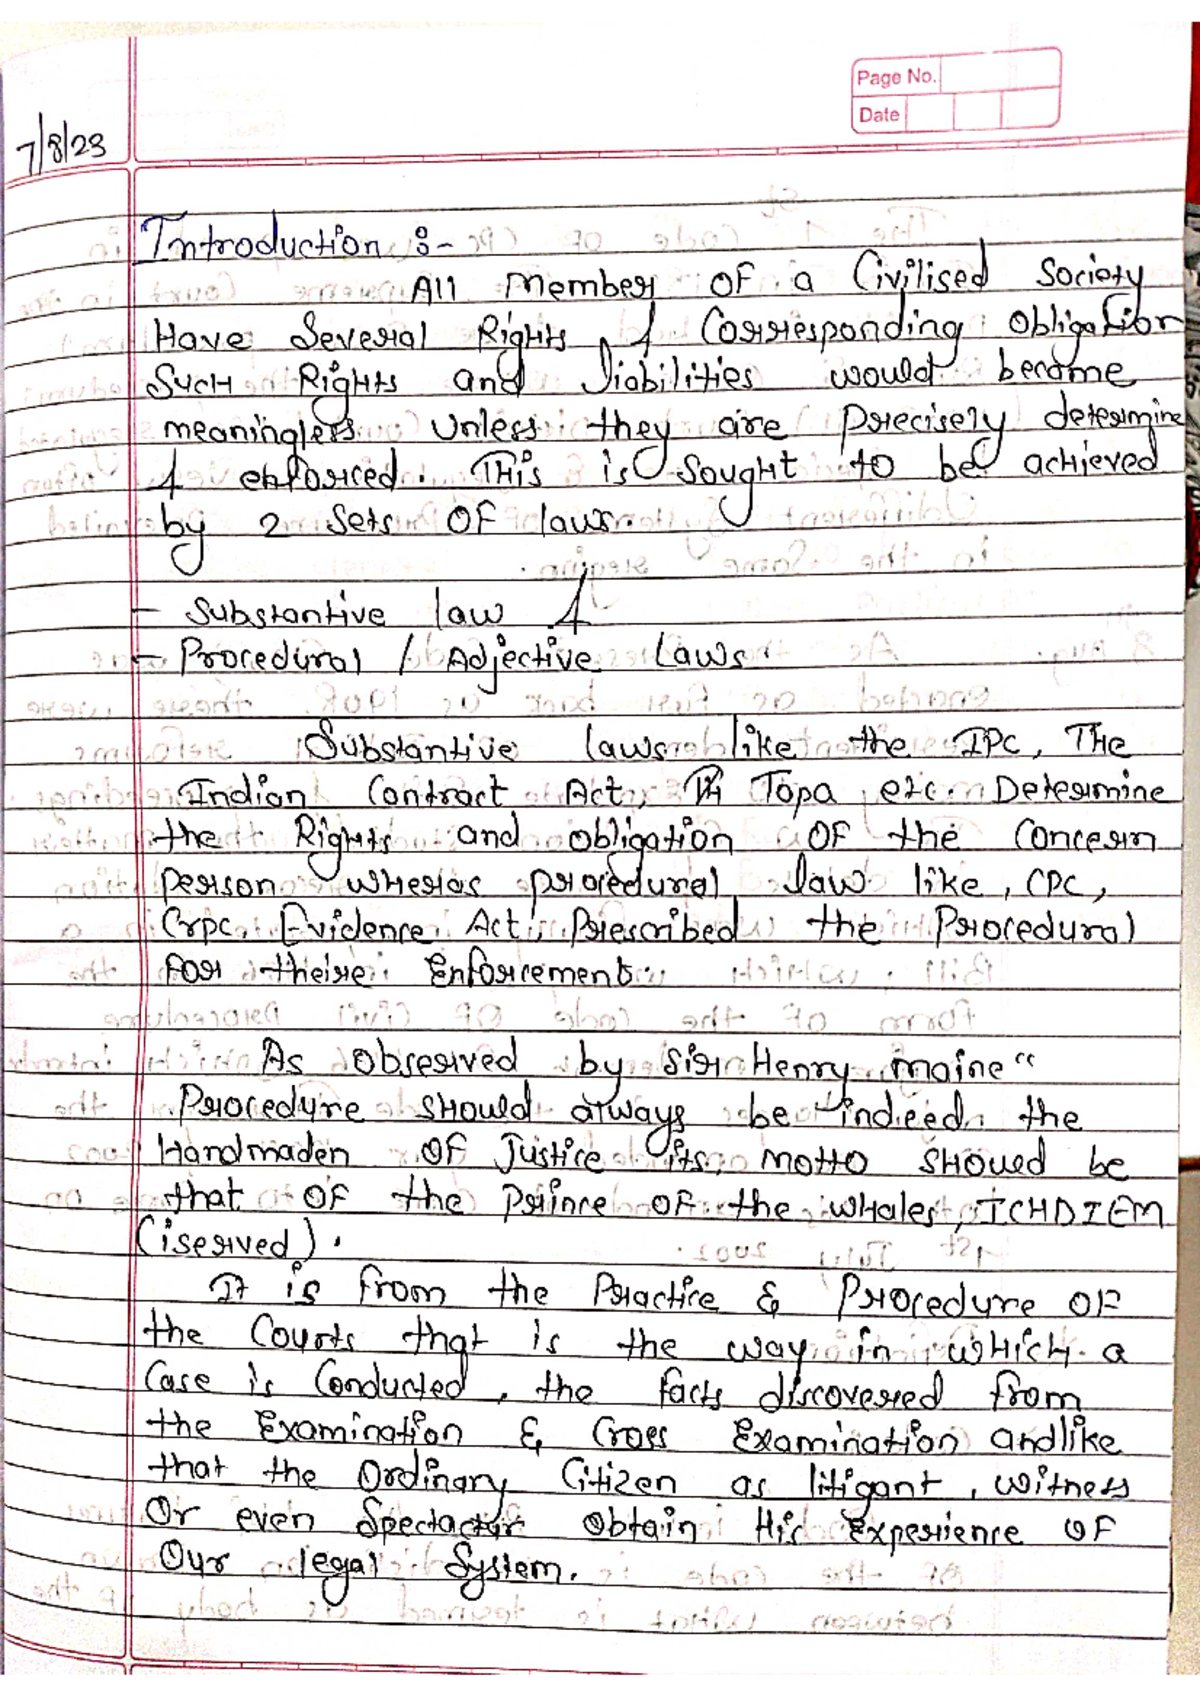 Page No.
Date
7/8/23
Introduction :-
All member of a Civilised Society
Have Several Rights & Corresponding obligation
Such Rights and liabilities would become
meaningless unless they are precisely determine
& enforced. This is Sought to be achieved
by 2 Sets of laws.
- Substantive law &
- Procedural / Adjective Laws.
Substantive laws like the IPC, The
Indian Contract Act, Topa etc. Determine
the Rights and obligation of the Concern
person wheras procedural law like, CPC,
Crpc, Evidence Act, Prescribed the Procedural
for theire Enforcement.
As observed by Sir Henry maine "
Procedure should always be indeed the
Handmaden of Justice its motto shoued be
that of the Prince of the whales, ICHDIEM
(iserved).
It is from the Practice & Procedure of
the Courts that is the way in which a
Case is Conducted, the facts discovered from
the Examination & Cross Examination andlike
that the Ordinary Citizen as litigant, witness
Or even Spectactur obtain His Experience of
Our legal System.